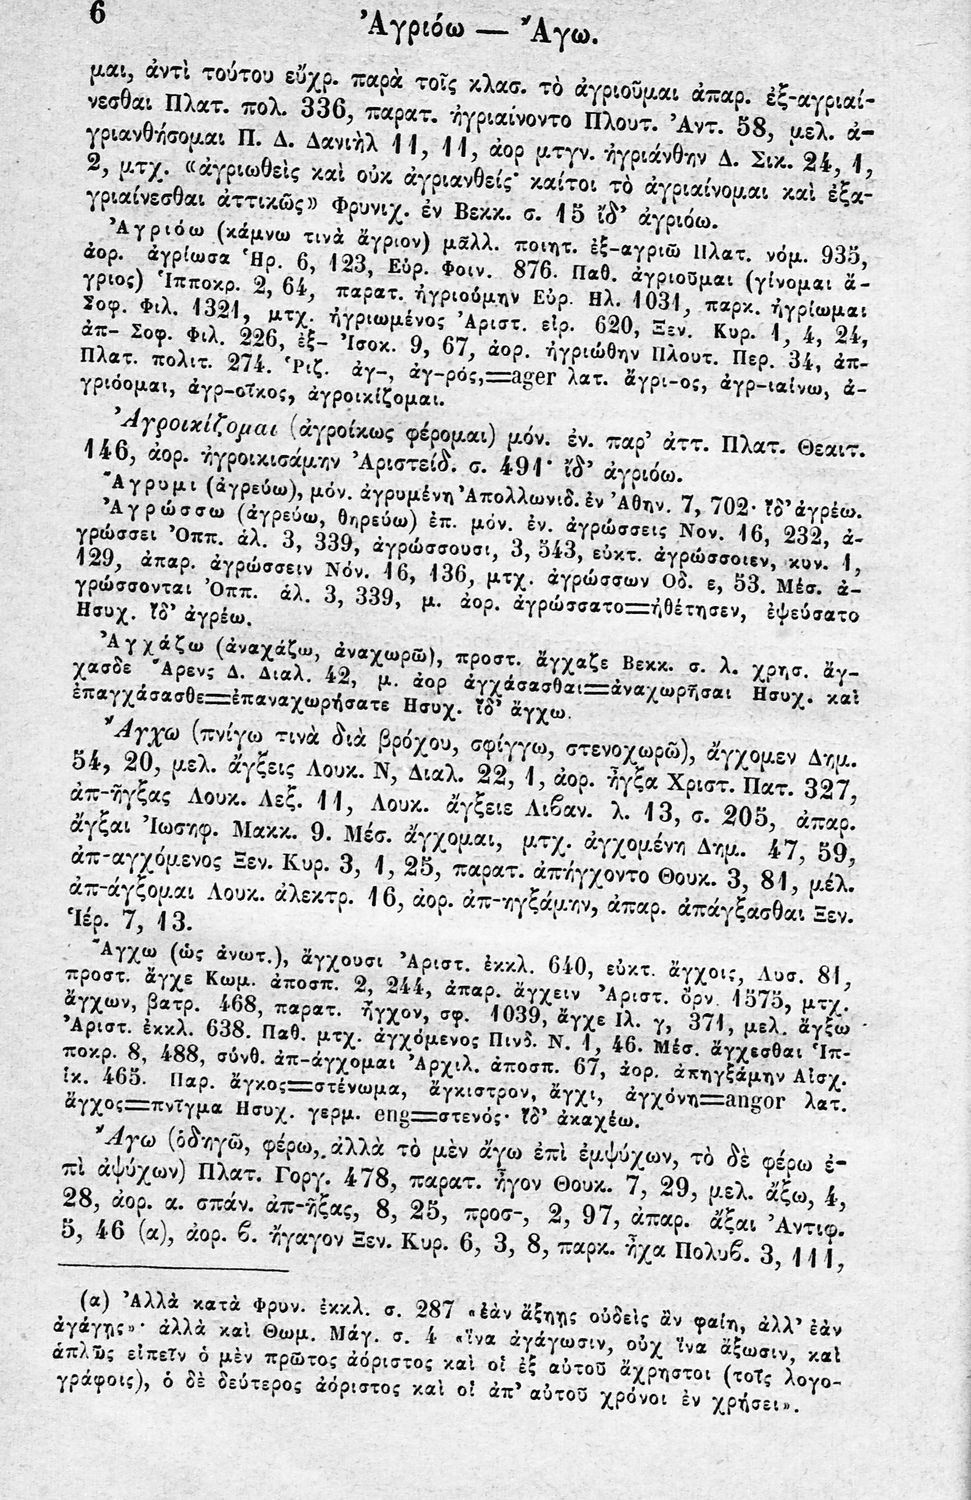 6
Ἀγριόω — Ἄγω.
μαι, ἀντὶ τούτου εὔχρ. παρὰ τοῖς κλασ. τὸ ἀγριοῦμαι ἀπαρ. ἐξ-αγριαί-
νεσθαι Πλατ. πολ. 336, παρατ. ἠγριαίνοντο Πλουτ. Ἀντ. 58, μελ. ἀ-
γριανθήσομαι Π. Δ. Δανιὴλ 11, 11, ἀορ μτγν. ἠγριάνθην Δ. Σικ. 24, 1,
2, μτχ. «ἀγριωθεὶς καὶ οὐκ ἀγριανθείς· καίτοι τὸ ἀγριαίνομαι καὶ ἐξα-
γριαίνεσθαι ἀττικῶς» Φρυνιχ. ἐν Βεκκ. σ. 15 ἴδ' ἀγριόω.
Ἀγριόω (κάμνω τινὰ ἄγριον) μᾶλλ. ποιητ. ἐξ-αγριῶ Πλατ. νόμ. 935,
ἀορ. ἀγρίωσα Ἡρ. 6, 123, Εὐρ. Φοιν. 876. Παθ. ἀγριοῦμαι (γίνομαι ἄ-
γριος) Ἱπποκρ. 2, 64, παρατ. ἠγριούμην Εὐρ. Ηλ. 1031, παρκ. ἠγρίωμαι
Σοφ. Φιλ. 1321, μτχ. ἠγριωμένος Ἀριστ. εἰρ. 620, Ξεν. Κυρ. 1, 4, 24,
ἀπ- Σοφ. Φιλ. 226, ἐξ- Ἰσοκ. 9, 67, ἀορ. ἠγριώθην Πλουτ. Περ. 34, ἀπ-
Πλατ. πολιτ. 274. Ῥιζ. ἀγ-, ἀγ-ρός,=ager λατ. ἄγρι-ος, ἀγρ-ιαίνω, ἀ-
γριόομαι, ἀγρ-οῖκος, ἀγροικίζομαι.
Ἀγροικίζομαι (ἀγροίκως φέρομαι) μόν. ἐν. παρ' ἀττ. Πλατ. Θεαιτ.
146, ἀορ. ἠγροικισάμην Ἀριστείδ. σ. 491· ἴδ' ἀγριόω.
Ἄγρυμι (ἀγρεύω), μόν. ἀγρυμένη Ἀπολλωνιδ. ἐν Ἀθην. 7, 702· ἴδ' ἀγρέω.
Ἀγρώσσω (ἀγρεύω, θηρεύω) ἐπ. μόν. ἐν. ἀγρώσσεις Νον. 16, 232, ἀ-
γρώσσει Ὀππ. ἁλ. 3, 339, ἀγρώσσουσι, 3, 543, εὐκτ. ἀγρώσσοιεν, κυν. 1,
129, ἀπαρ. ἀγρώσσειν Νόν. 16, 136, μτχ. ἀγρώσσων Οδ. ε, 53. Μέσ. ἀ-
γρώσσονται Ὀππ. ἁλ. 3, 339, μ. ἀορ. ἀγρώσσατο=ἠθέτησεν, ἐψεύσατο
Ησυχ. ἴδ' ἀγρέω.
Ἀγχάζω (ἀναχάζω, ἀναχωρῶ), προστ. ἄγχαζε Βεκκ. σ. λ. χρησ. ἄγ-
χασδε Ἄρενς Δ. Διαλ. 42, μ. ἀορ ἀγχάσασθαι=ἀναχωρῆσαι Ησυχ. καὶ
ἐπαγχάσασθε=ἐπαναχωρήσατε Ησυχ. ἴδ' ἄγχω.
Ἄγχω (πνίγω τινὰ διὰ βρόχου, σφίγγω, στενοχωρῶ), ἄγχομεν Δημ.
54, 20, μελ. ἄγξεις Λουκ. Ν, Διαλ. 22, 1, ἀορ. ἦγξα Χριστ. Πατ. 327,
ἀπ-ῆγξας Λουκ. Λεξ. 11, Λουκ. ἄγξειε Λιβαν. λ. 13, σ. 205, ἀπαρ.
ἄγξαι Ἰωσηφ. Μακκ. 9. Μέσ. ἄγχομαι, μτχ. ἀγχομένη Δημ. 47, 59,
ἀπ-αγχόμενος Ξεν. Κυρ. 3, 1, 25, παρατ. ἀπήγχοντο Θουκ. 3, 81, μέλ.
ἀπ-άγξομαι Λουκ. ἀλεκτρ. 16, ἀορ. ἀπ-ηγξάμην, ἀπαρ. ἀπάγξασθαι Ξεν.
Ἱέρ. 7, 13.
Ἄγχω (ὡς ἀνωτ.), ἄγχουσι Ἀριστ. ἐκκλ. 640, εὐκτ. ἄγχοις, Λυσ. 81,
προστ. ἄγχε Κωμ. ἀποσπ. 2, 244, ἀπαρ. ἄγχειν Ἀριστ. ὄρν. 1575, μτχ.
ἄγχων, βατρ. 468, παρατ. ἦγχον, σφ. 1039, ἄγχε Ιλ. γ, 371, μελ. ἄγξω
Ἀριστ. ἐκκλ. 638. Παθ. μτχ. ἀγχόμενος Πινδ. Ν. 1, 46. Μέσ. ἄγχεσθαι Ἱπ-
ποκρ. 8, 488, σύνθ. ἀπ-άγχομαι Ἀρχιλ. ἀποσπ. 67, ἀορ. ἀπηγξάμην Αἰσχ.
ἱκ. 465. Παρ. ἄγκος=στένωμα, ἄγκιστρον, ἄγχι, ἀγχόνη=angor λατ.
ἄγχος=πνῖγμα Ησυχ. γερμ. eng=στενός· ἴδ' ἀκαχέω.
Ἄγω (ὁδηγῶ, φέρω, ἀλλὰ τὸ μὲν ἄγω ἐπὶ ἐμψύχων, τὸ δὲ φέρω ἐ-
πὶ ἀψύχων) Πλατ. Γοργ. 478, παρατ. ἦγον Θουκ. 7, 29, μελ. ἄξω, 4,
28, ἀορ. α. σπάν. ἀπ-ῆξας, 8, 25, προσ-, 2, 97, ἀπαρ. ἄξαι Ἀντιφ.
5, 46 (α), ἀορ. β. ἤγαγον Ξεν. Κυρ. 6, 3, 8, παρκ. ἦχα Πολυβ. 3, 111,
(α) Ἀλλὰ κατὰ Φρυν. ἐκκλ. σ. 287 «ἐὰν ἄξῃς οὐδεὶς ἂν φαίη, ἀλλ' ἐὰν
ἀγάγῃς»· ἀλλὰ καὶ Θωμ. Μάγ. σ. 4 «ἵνα ἀγάγωσιν, οὐχ ἵνα ἄξωσιν, καὶ
ἁπλῶς εἰπεῖν ὁ μὲν πρῶτος ἀόριστος καὶ οἱ ἐξ αὐτοῦ ἄχρηστοι (τοῖς λογο-
γράφοις), ὁ δὲ δεύτερος ἀόριστος καὶ οἱ ἀπ' αὐτοῦ χρόνοι ἐν χρήσει».